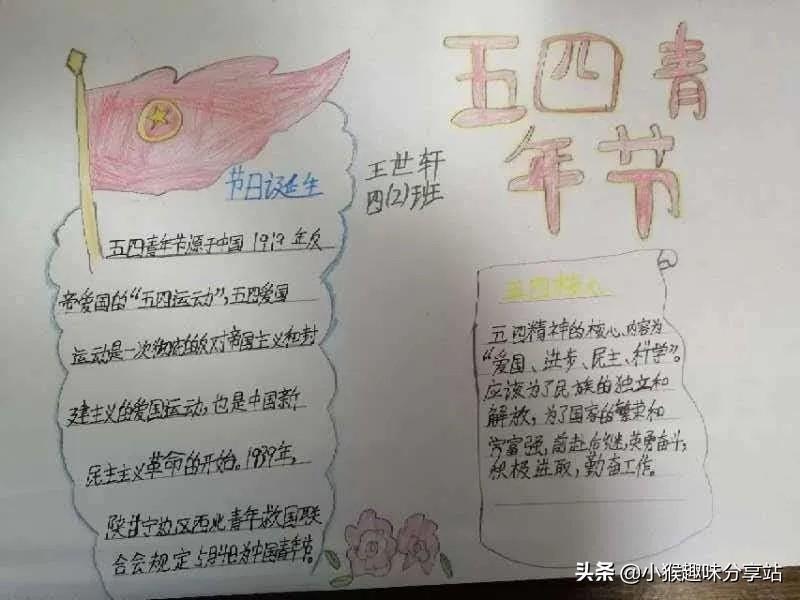 五四青
年节
王世轩
四(2)班
节日诞生
五四青年节源于中国1919年反
帝爱国的“五四运动”,五四爱国
运动是一次彻底的反对帝国主义和封
建主义的爱国运动,也是中国新
民主主义革命的开始。1939年,
陕甘宁边区西北青年救国联
合会规定5月4日为中国青年节。
五四核心
五四精神的核心内容为
“爱国、进步、民主、科学”。
应该为了民族的独立和
解放,为了国家的繁荣和
富强,前赴后继,英勇奋斗,
积极进取,勤奋工作。
头条@小猴趣味分享站